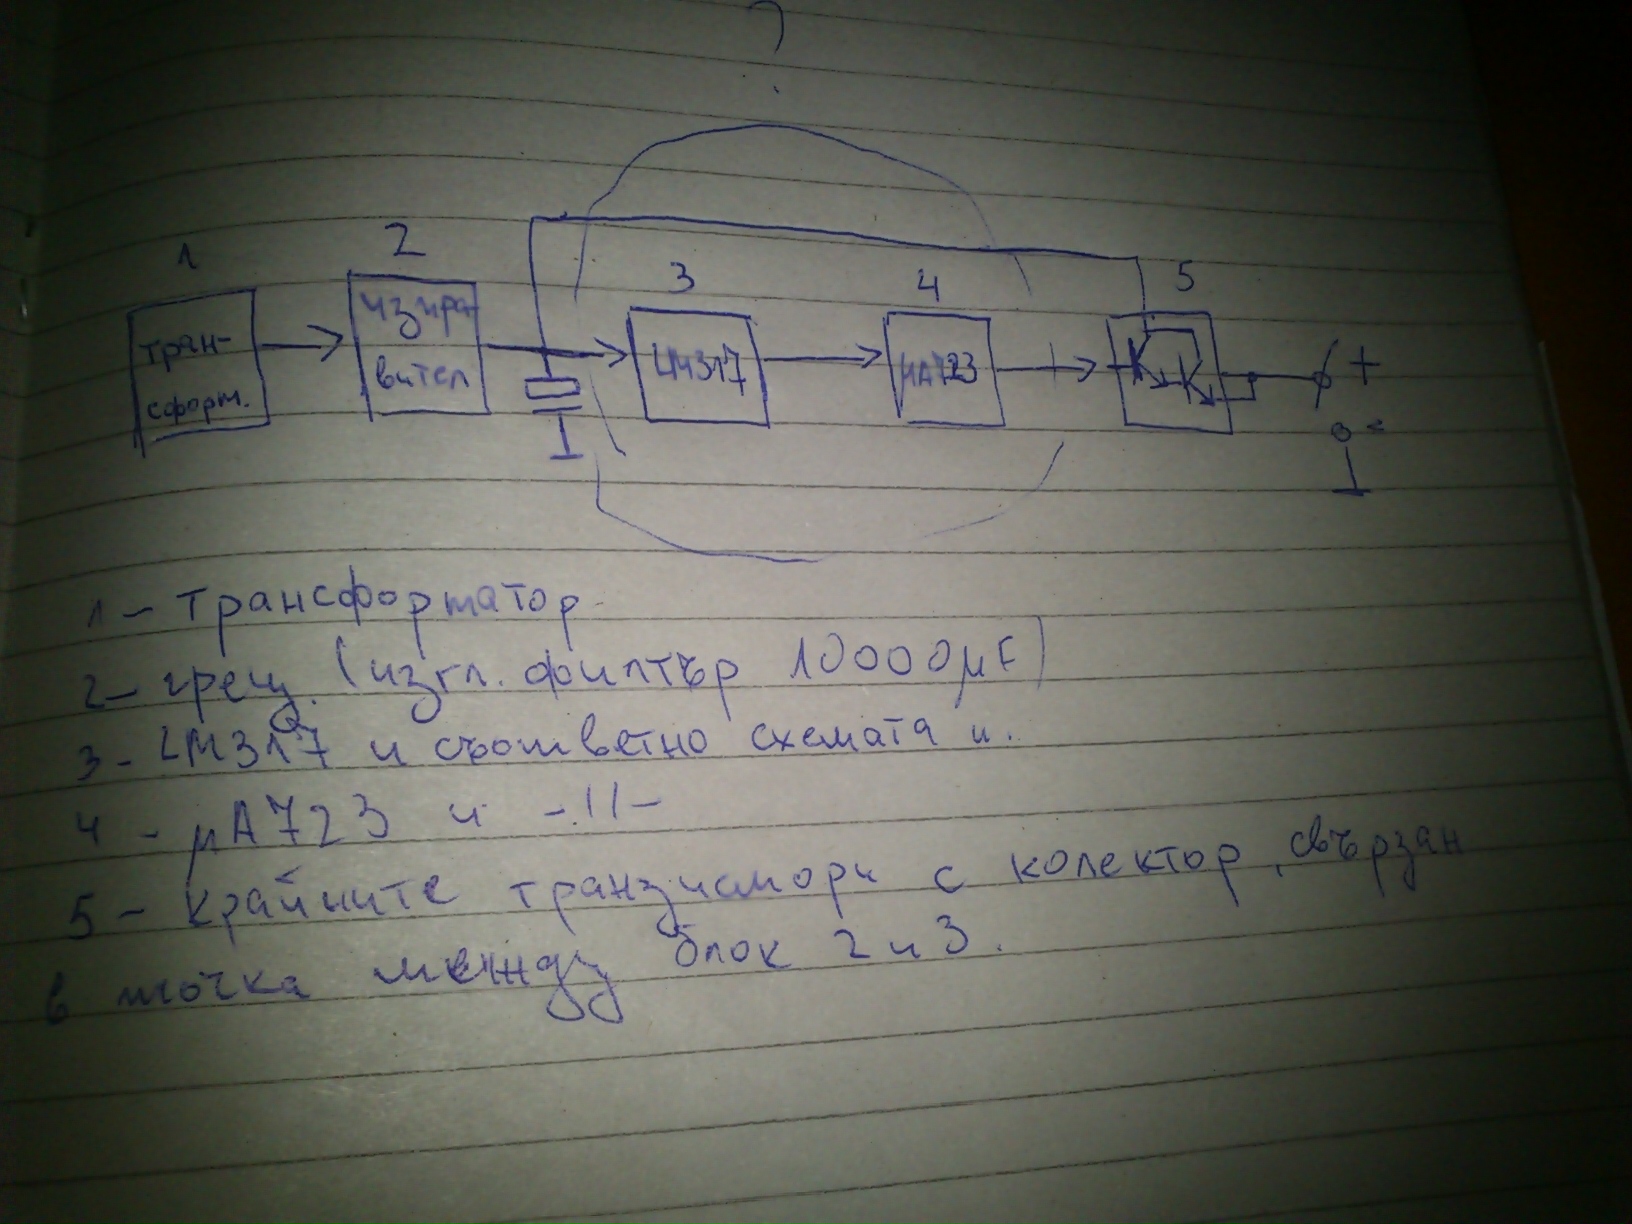 ?
1 2 3 4 5
тран-
сформ.
изпра-
вител
LM317
μA723
+
-
1 – трансформатор
2 – грец (изгл. филтър 10000μF)
3 – LM317 и съответно схемата и..
4 – μA723 и -.11-
5 – крайните транзистори с колектор, свързан
в точка между блок 2 и 3.